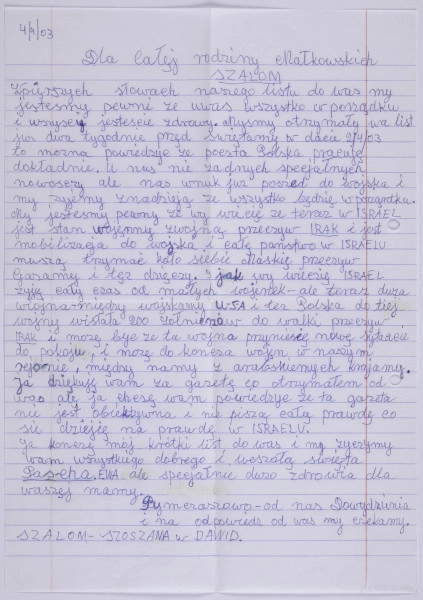 4/4/03
Dla całej rodziny Małkowskich
SZALOM
W pierszych słowach naszego listu do was my
jestesmy pewni ze uwas wszystko w porządku
i wszyscy jestescie zdrowy. Mysmy otrzymały wa list
juz dwa tygodnie przed swiętamy w dacie 2/4/03
to mozna powiedzye ze poesta Polska pracuje
dokladnie. U nas nie zadnych specjalnych
nowoscy ale nas wnuk juz poszed do wojska i
my zyjemy znadzieją ze wszystko będzie w porzątku.
My jestesmy pewny ze wy wiecie ze teraz w ISRAEL
jest stan wojenny zwojną przeciw IRAK i jest
mobilizacja do wojska i całe panstwo w ISRAELU
muszą trzymac koło siebie Maskie przecyw
Gazamy i tez dzięcy. I jak wy wiecie ISRAEL
zyje cały czas od małych wojenek - ale teraz duza
wojna - między wojskamy USA i tez Polska do tiej
wojny wisłała 200 zołnierów do walki przecyw
IRAK i moze bye ze ta wojna przyniesie nowe
do pokoju i moze do konca wojen w naszym
rejonie, między namy z arabskiemych krajamy.
Ja dziękuję wam za gazetę co otrzymałem od
was ale ja chcę wam powiedzye ze ta gazeta
nie jest obiektywna i nie piszą całą prawdę co
się dzieje na prawdę w ISRAELU.
Ja koncze mój krótki list do was i my zyczymy
wam wszystkiego dobrego i wesałą święta
Pascha. EWA ale specjalnie duzo zdrowia dla
waszej mamy.
od nas Dowydzinia
i na odpowiedz od was my czekamy.
SZALOM - SZOSZANA w DAWID.